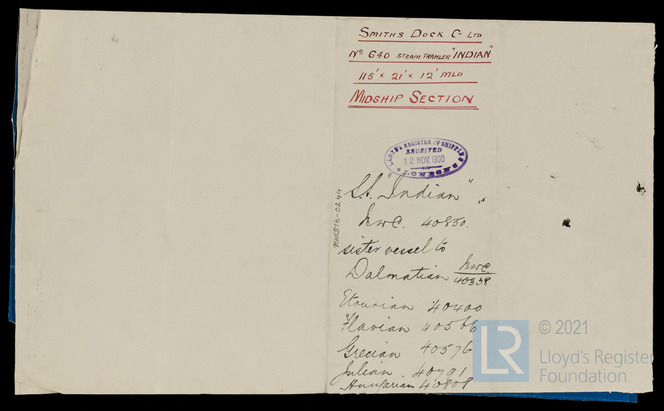 SMITHS DOCK Co LTD
No 640 STEAM TRAWLER "INDIAN"
115' x 21' x 12' MLD
MIDSHIP SECTION
LLOYD'S REGISTER OF SHIPPING
RECEIVED
12 NOV. 1900
"Indian"
Nwc. 40850.
sister vessel to
Dalmatian Nwc 40338
Etrurian 40400
Flavian 40566
Grecian 40576
Julian 40791
40808
LR
© 2021
Lloyd's Register
Foundation